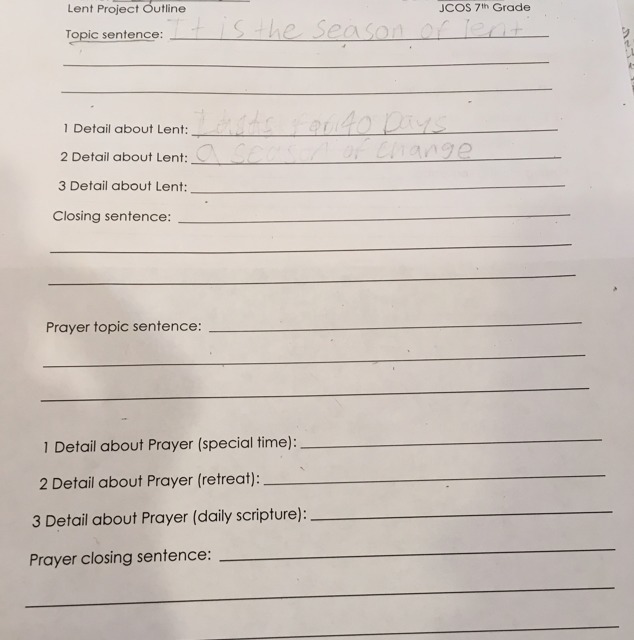 Lent Project Outline JCOS 7th Grade
Topic sentence: It is the season of lent
1 Detail about Lent: Lasts for 40 Days
2 Detail about Lent: a season of change
3 Detail about Lent:
Closing sentence:
Prayer topic sentence:
1 Detail about Prayer (special time):
2 Detail about Prayer (retreat):
3 Detail about Prayer (daily scripture):
Prayer closing sentence: